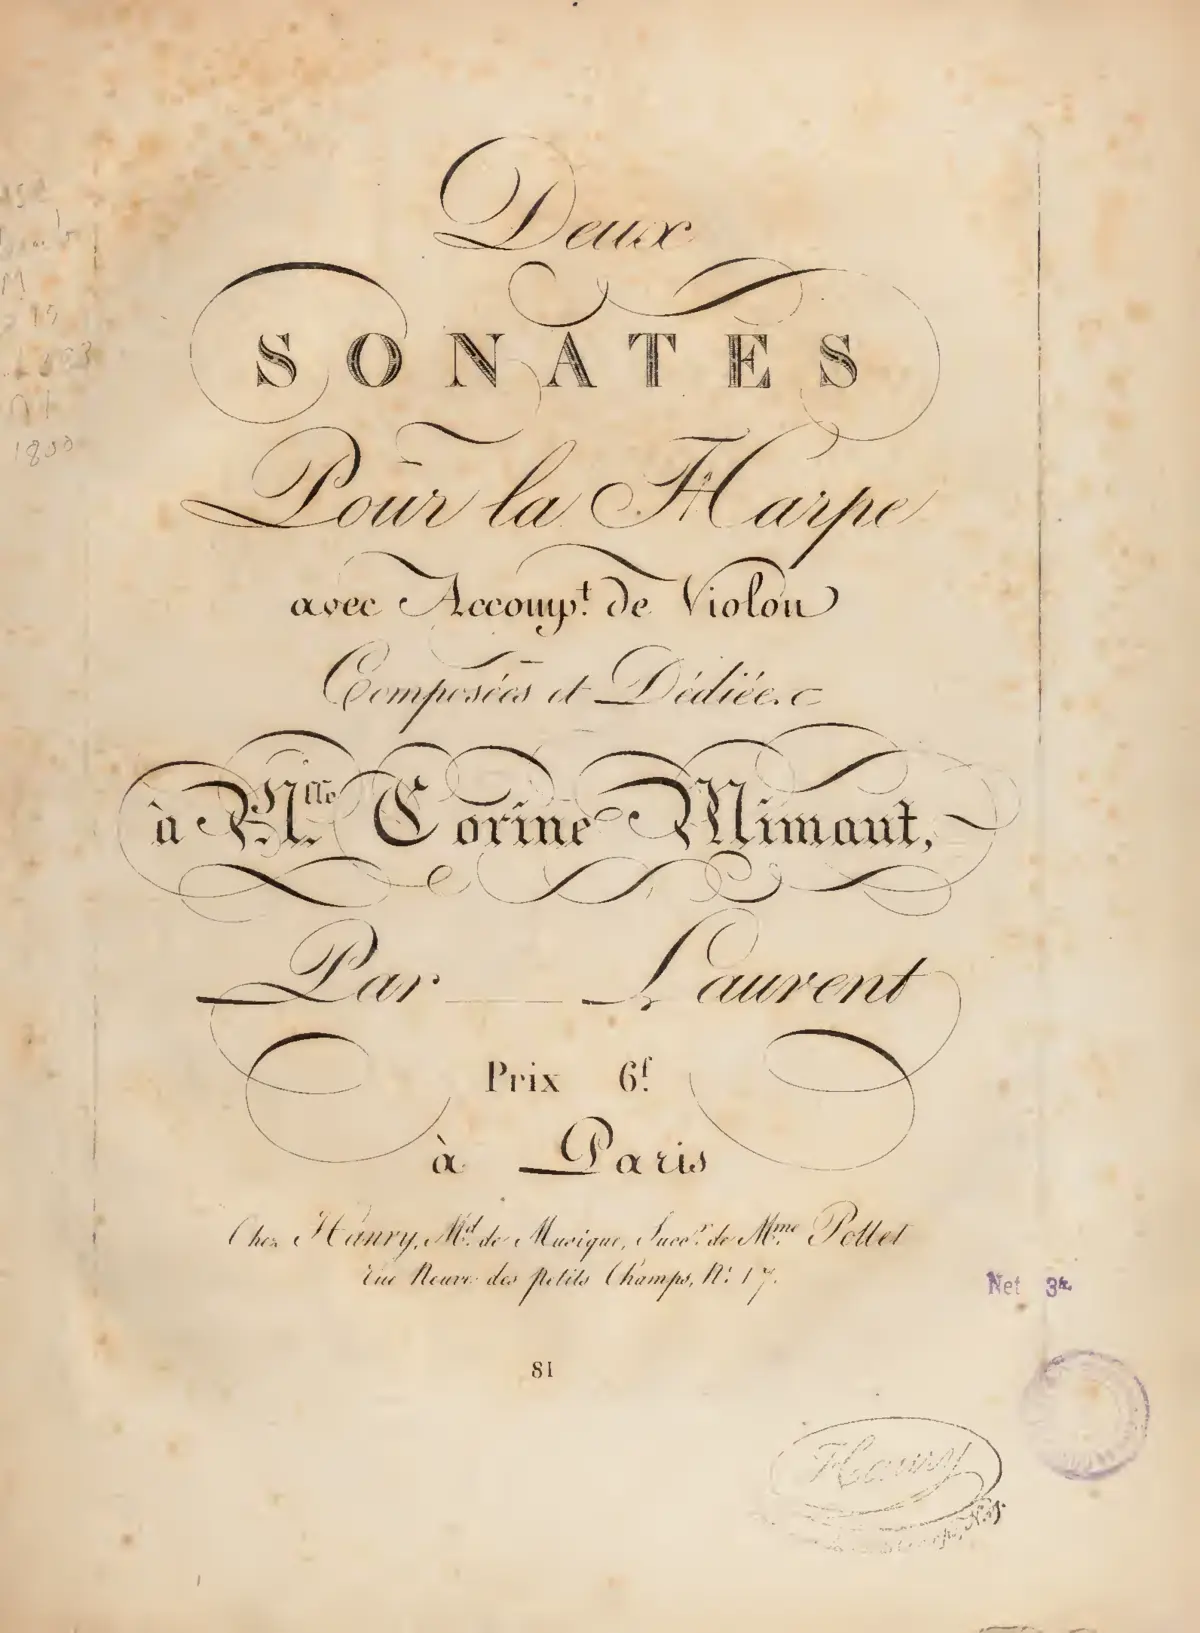 Deux
SONATES
Pour la Harpe
avec Accomp.t de Violon
Composées et Dédiées
à M.lle Corine Mimaut,
Par Laurent
Prix 6.f
à Paris
Chez Hanry, M.d de Musique, Succ.r de M.me Pollet
Rue Neuve des petits Champs, N.º 17.
Net 3
81
Hanry
1800